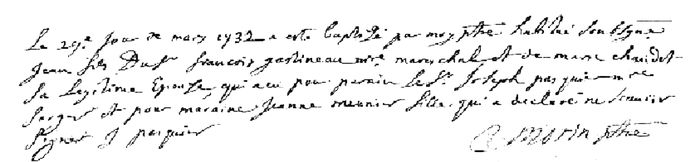 Le 29e Jour de mars 1732 a esté baptisé par moy ptre habitué soubsigné
Jean fils Du Sr francois gastineau mre mareschal et de marie chaidet
Sa Legitime Epouze, qui a eu pour parain Le Sr Joseph pasquier mre
Serger et pour maraine Jeanne meunier fille, qui a declaré ne scauoir
Signer J pasquier
Morin ptre